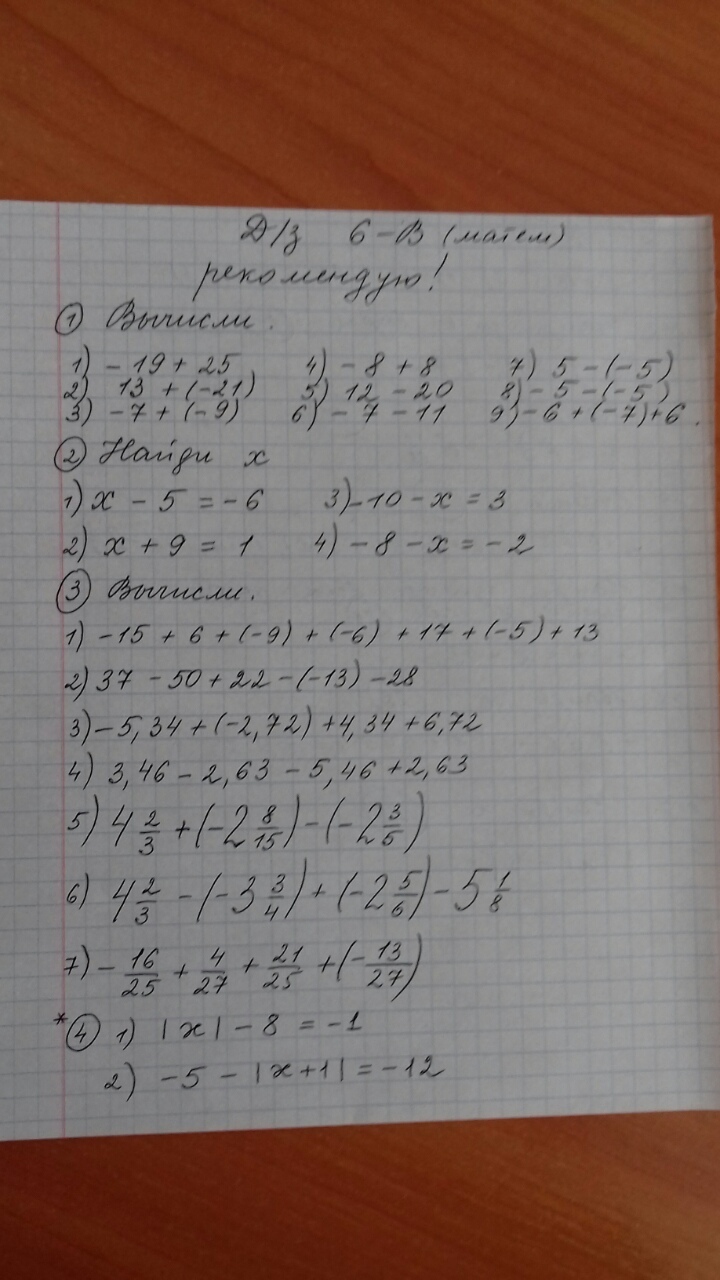 Д/з 6-В (матем)
рекомендую!
① Вычисли.
1) - 19 + 25 4) - 8 + 8 7) 5 - (-5)
2) 13 + (-21) 5) 12 - 20 8) - 5 - (-5)
3) - 7 + (-9) 6) - 7 - 11 9) - 6 + (-7) + 6.
② Найди x
1) x - 5 = - 6 3) - 10 - x = 3
2) x + 9 = 1 4) - 8 - x = - 2
③ Вычисли.
1) - 15 + 6 + (-9) + (-6) + 17 + (-5) + 13
2) 37 - 50 + 22 - (-13) - 28
3) - 5,34 + (-2,72) + 4,34 + 6,72
4) 3,46 - 2,63 - 5,46 + 2,63
5) 4 2/3 + (-2 8/15) - (-2 3/5)
6) 4 2/3 - (-3 3/4) + (-2 5/6) - 5 1/8
7) - 16/25 + 4/27 + 21/25 + (- 13/27)
* ④ 1) |x| - 8 = - 1
2) - 5 - |x + 1| = - 12